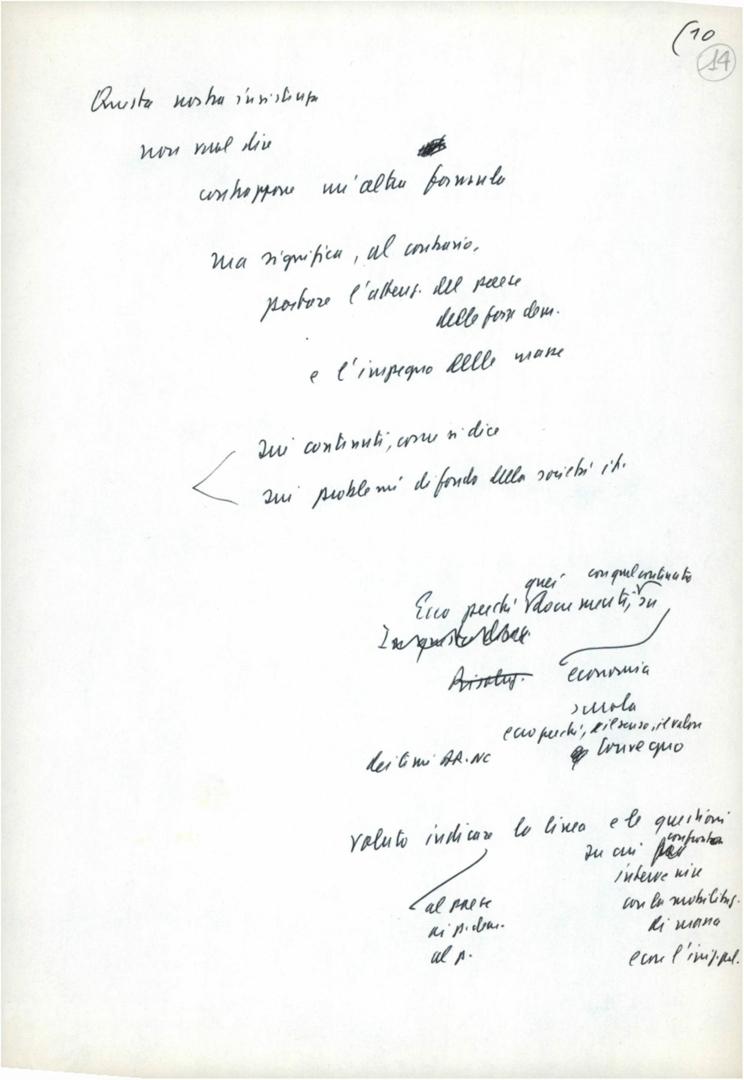 (10
14
Questa nostra insistenza
non vuol dire
contrapporre un'altra formula
ma significa, al contrario,
portare l'attenz. del paese
delle forze dem.
e l'impegno delle masse
sui contenuti, come si dice
sui problemi di fondo della società it.
quei con quel contenuto
Ecco perchè documenti, su
economia
scuola
ecco perchè, il senso, il valore
Convegno
dei temi
voluto indicare la linea e le questioni
su cui confronto
intervenire
al paese con la mobilitaz.
ai p. dem. di massa
al p. e con l'imp. pol.